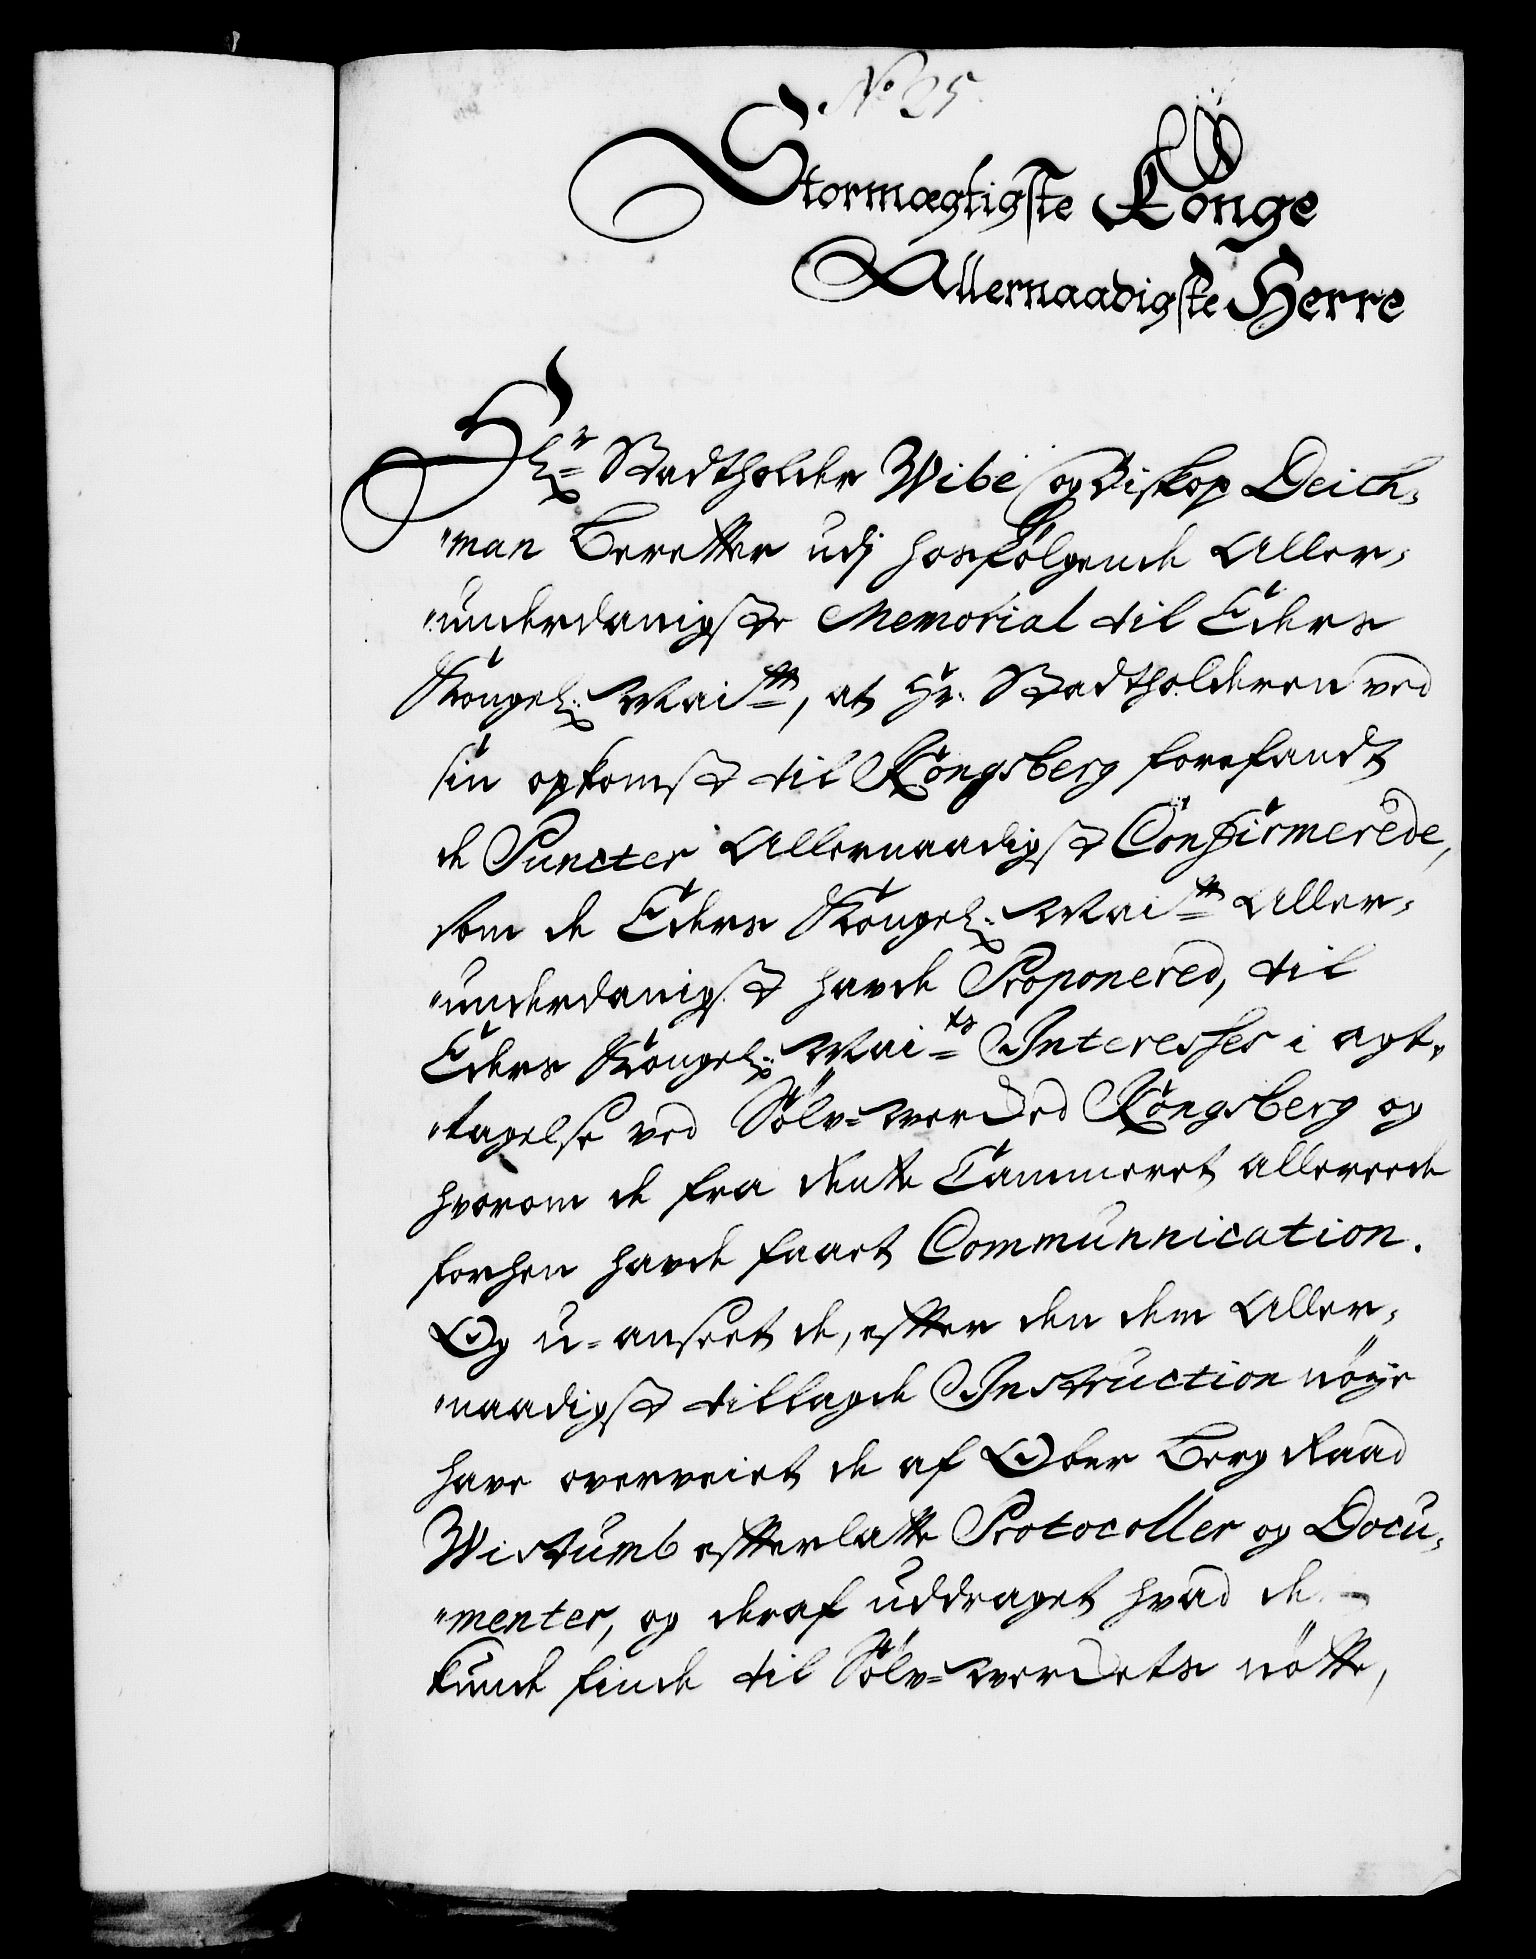 No 25.
Stormægtigste Konge
Allernaadigste Herre
Hr Stadtholder Wibe og Biskop Deich-
man Beretter udj hosfølgende Aller-
underdanigste Memorial til Eders
Kongel: Maits, at Hr: Stadtholderen ved
sin opkomst til Kongsberg forefandt
de Puncter Allernaadigst Confirmerede,
som de Eders Kongel: Maits Aller-
underdanigst havde Proponered, til
Eders Kongel: Maits Interesses i agt-
tagelse ved Sölv-Werked Kongsberg og
hvorom de fra dette Cammeret allereede
forhen havde faaet Communnication.
Og u-anseet de, efter den dem Aller-
naadigst tillagde Instruction nöye
have overveiet de af Ober Berg Raad
Wistumb efterlatte Protocoller og Docu-
menter, og deraf uddraget hvad de
kunde finde til Sölv-Werkets nötte,